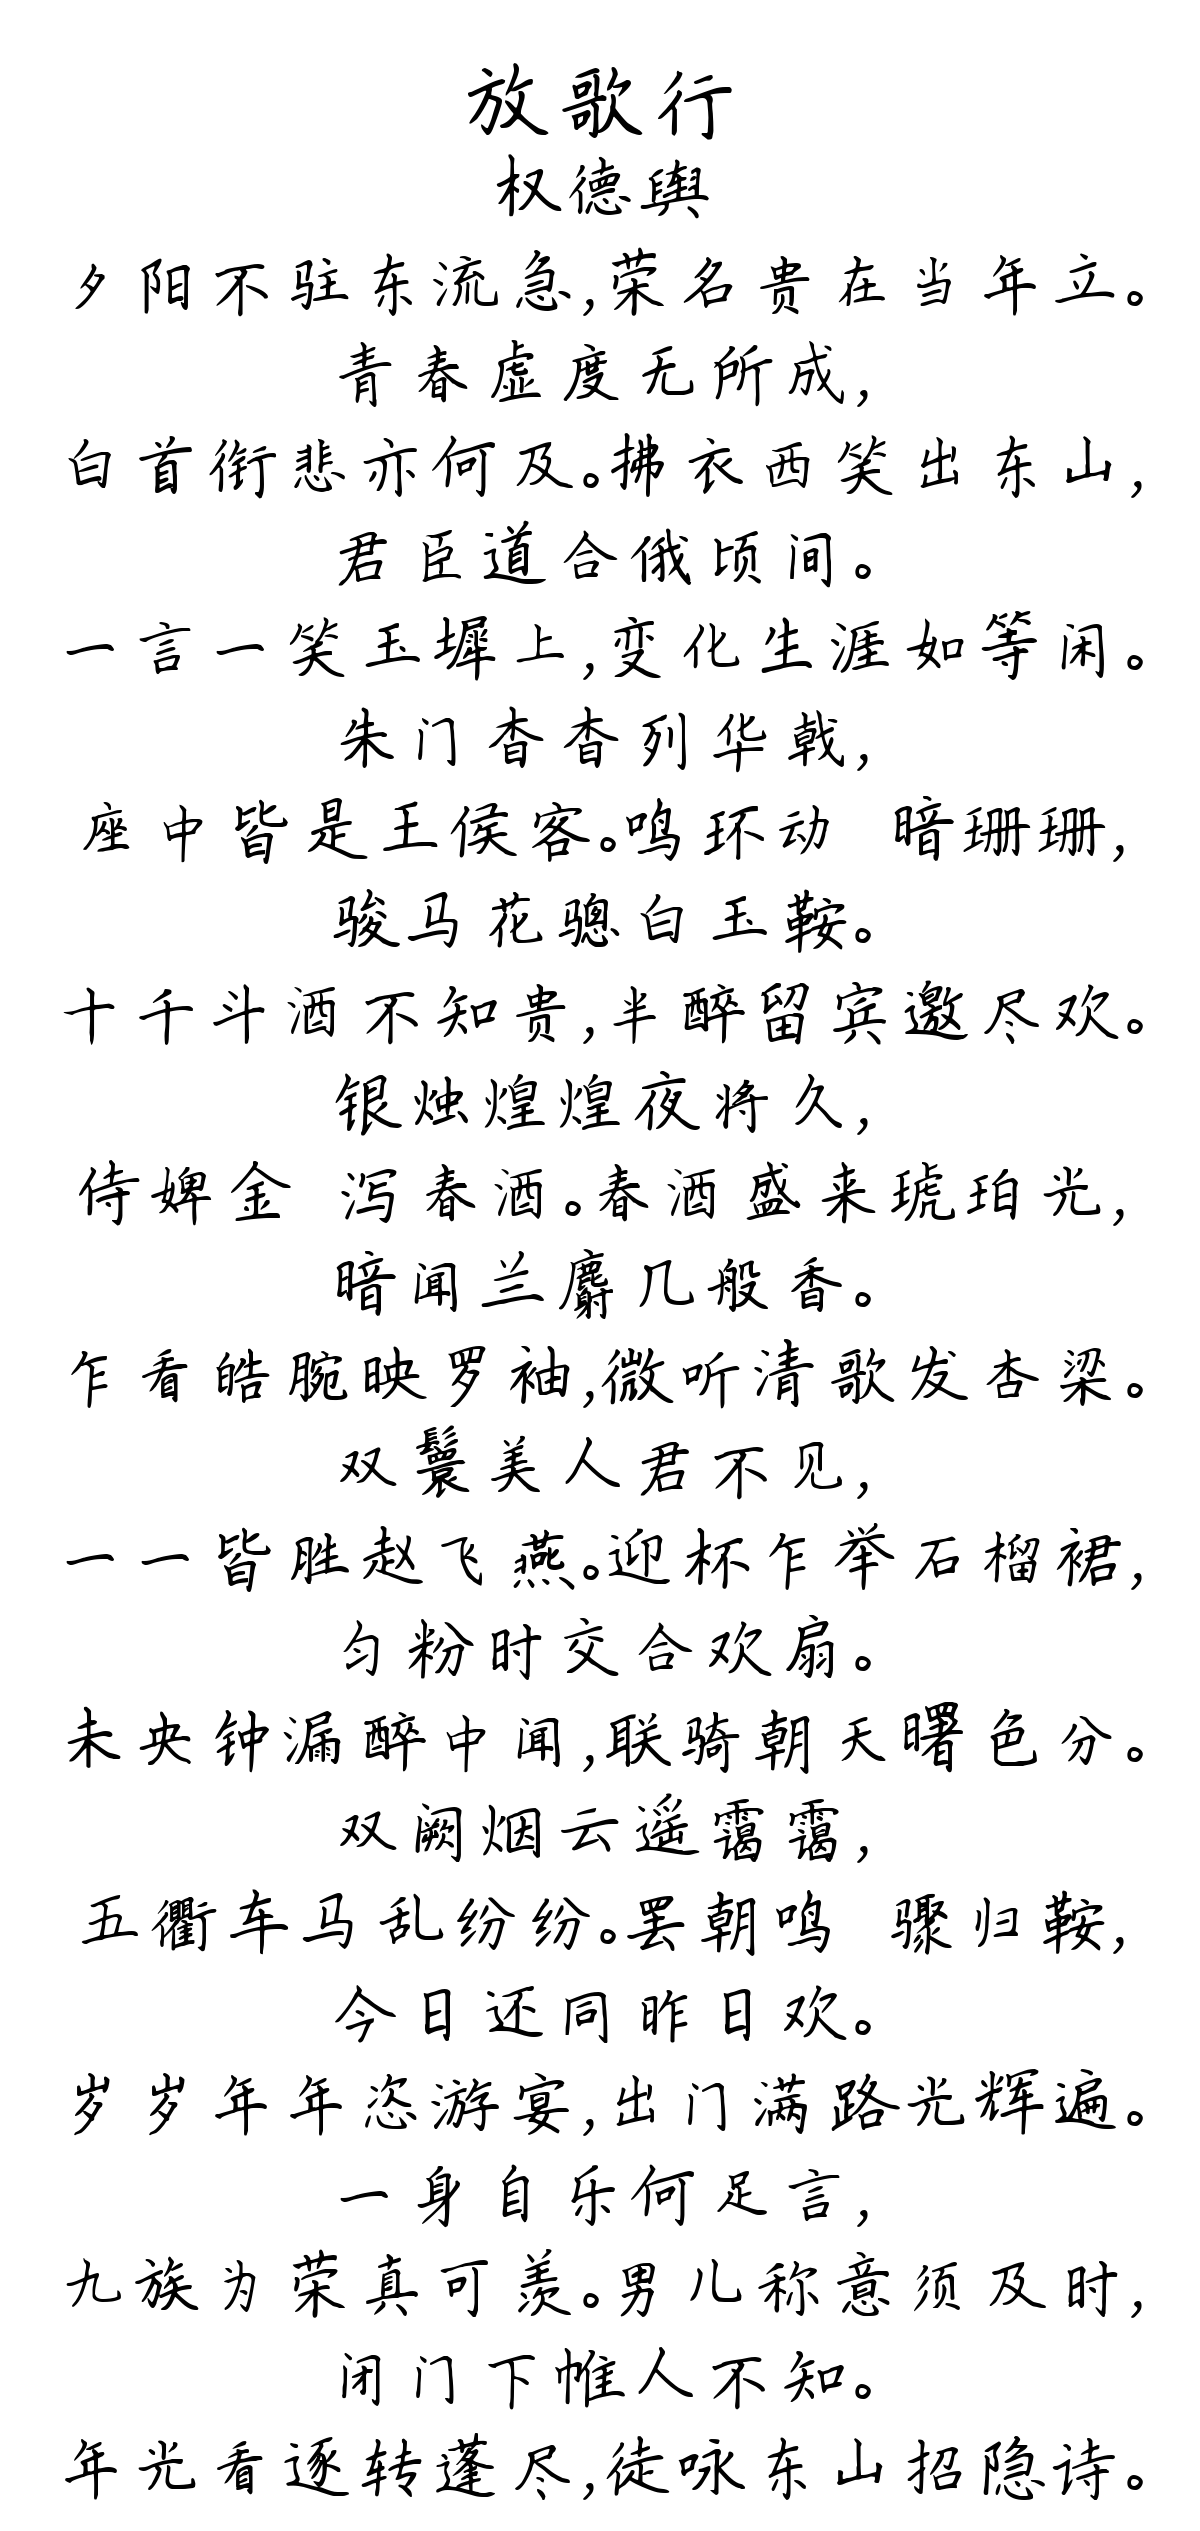 放歌行
权德舆
夕阳不驻东流急,荣名贵在当年立。
青春虚度无所成,
白首衔悲亦何及。拂衣西笑出东山,
君臣道合俄顷间。
一言一笑玉墀上,变化生涯如等闲。
朱门杳杳列华戟,
座中皆是王侯客。鸣环动 暗珊珊,
骏马花骢白玉鞍。
十千斗酒不知贵,半醉留宾邀尽欢。
银烛煌煌夜将久,
侍婢金 泻春酒。春酒盛来琥珀光,
暗闻兰麝几般香。
乍看皓腕映罗袖,微听清歌发杏梁。
双鬟美人君不见,
一一皆胜赵飞燕。迎杯乍举石榴裙,
匀粉时交合欢扇。
未央钟漏醉中闻,联骑朝天曙色分。
双阙烟云遥霭霭,
五衢车马乱纷纷。罢朝鸣 骤归鞍,
今日还同昨日欢。
岁岁年年恣游宴,出门满路光辉遍。
一身自乐何足言,
九族为荣真可羡。男儿称意须及时,
闭门下帷人不知。
年光看逐转蓬尽,徒咏东山招隐诗。